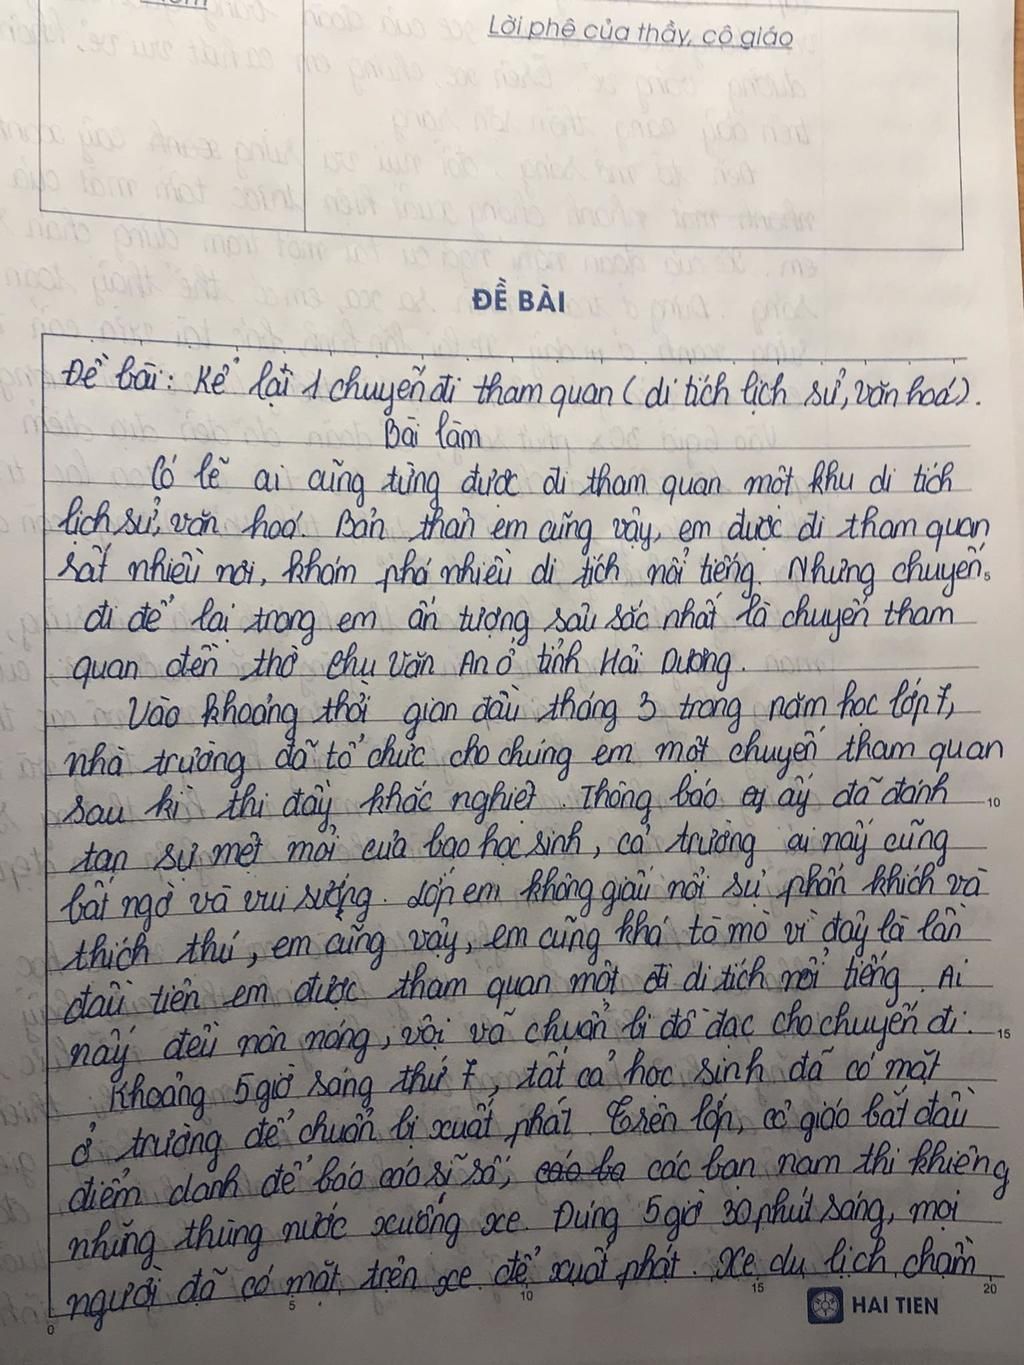 Lời phê của thầy, cô giáo
ĐỀ BÀI
Đề bài: Kể lại 1 chuyến đi tham quan (di tích lịch sử, văn hoá).
Bài làm
Có lẽ ai cũng từng được đi tham quan một khu di tích
lịch sử, văn hoá. Bản thân em cũng vậy, em được đi tham quan
rất nhiều nơi, khám phá nhiều di tích nổi tiếng. Nhưng chuyến 5
đi để lại trong em ấn tượng sâu sắc nhất là chuyến tham
quan đền thờ Chu Văn An ở tỉnh Hải Dương.
Vào khoảng thời gian đầu tháng 3 trong năm học lớp 7,
nhà trường đã tổ chức cho chúng em một chuyến tham quan
sau kì thi đầy khắc nghiệt. Thông báo ấy đã đánh 10
tan sự mệt mỏi của bao học sinh, cả trường ai nấy cũng
bất ngờ và vui sướng. Lớp em không giấu nổi sự phấn khích và
thích thú, em cũng vậy, em cũng khá tò mò vì đây là lần
đầu tiên em được tham quan một di tích nổi tiếng. Ai
nấy đều nôn nóng, vội vã chuẩn bị đồ đạc cho chuyến đi. 15
Khoảng 5 giờ sáng thứ 7, tất cả học sinh đã có mặt
ở trường để chuẩn bị xuất phát. Trên lớp, cô giáo bắt đầu
điểm danh để báo cáo sĩ số, các bạn nam thì khiêng
những thùng nước xuống xe. Đúng 5 giờ 30 phút sáng, mọi
người đã có mặt trên xe để xuất phát. Xe du lịch chậm 20
0 5 10 15
HAI TIEN